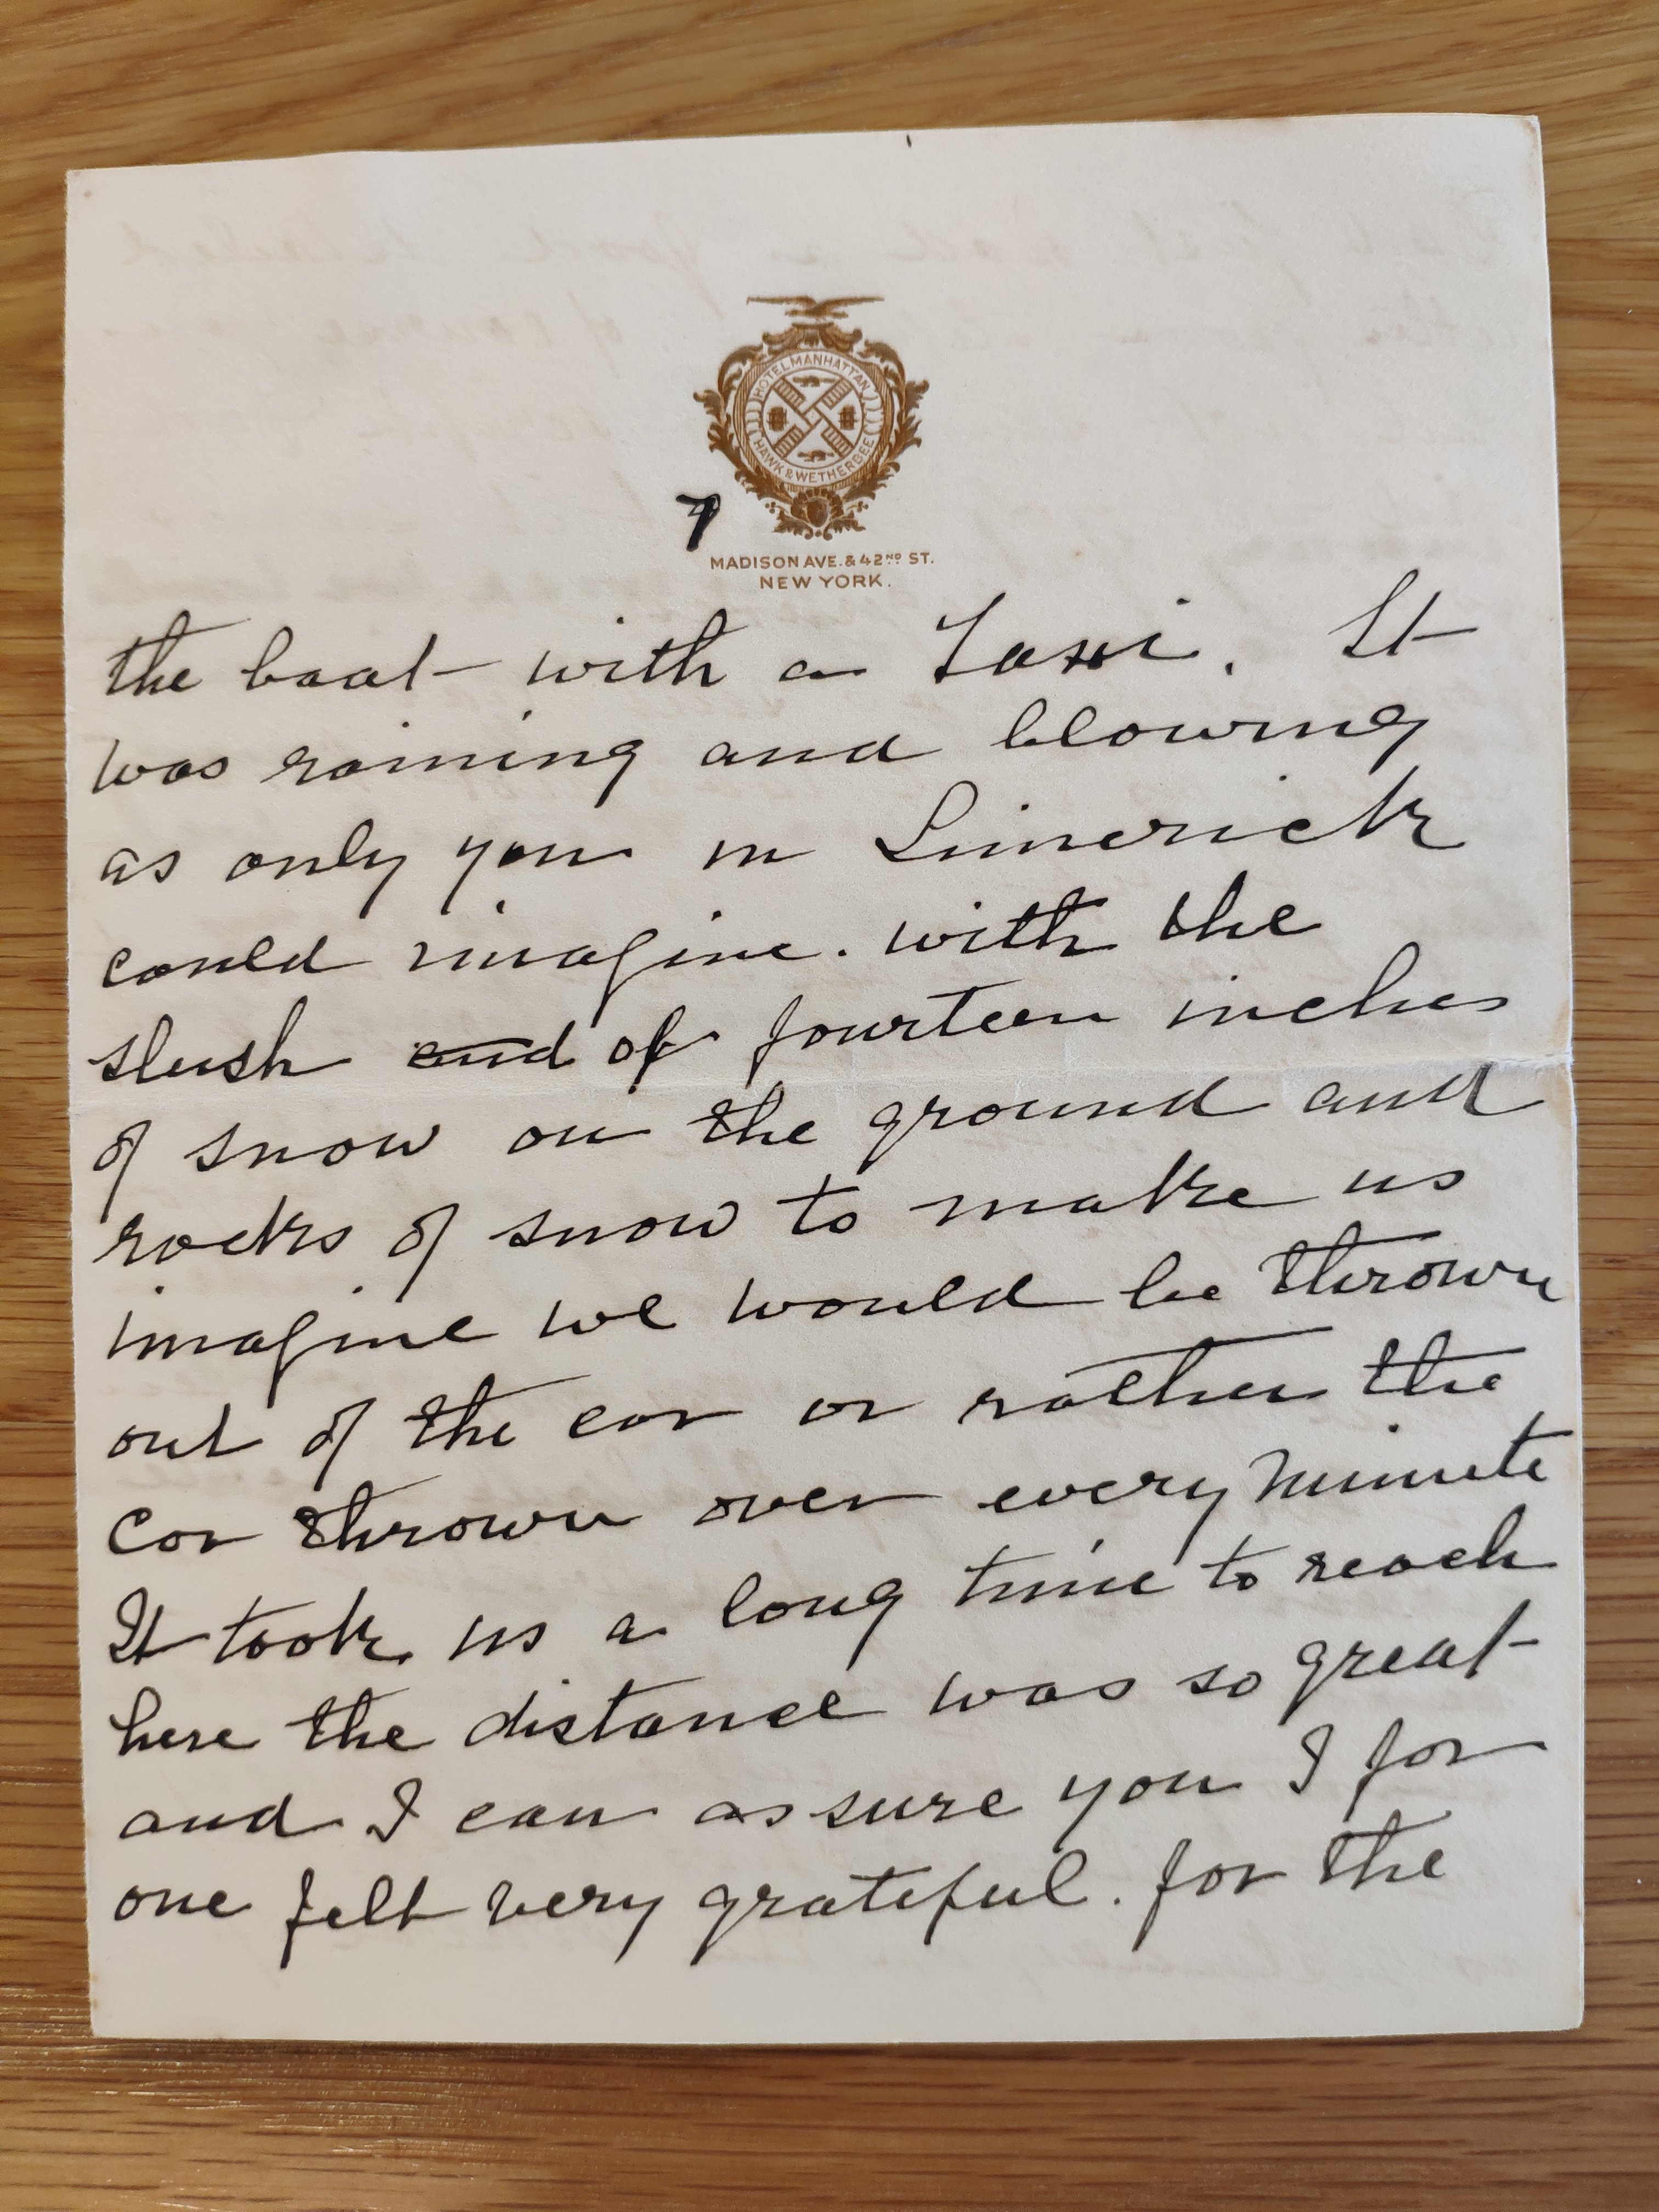 HOTEL MANHATTAN
HAWK & WETHERBEE
7
MADISON AVE. & 42ND ST.
NEW YORK.
the boat with a Taxi. It
was raining and blowing
as only you in Limerick
could imagine. with the
slush and of fourteen inches
of snow on the ground and
rocks of snow to make us
imagine we would be thrown
out of the car or rather the
car thrown over every minute
It took us a long time to reach
here the distance was so great
and I can assure you I for
one felt very grateful. for the